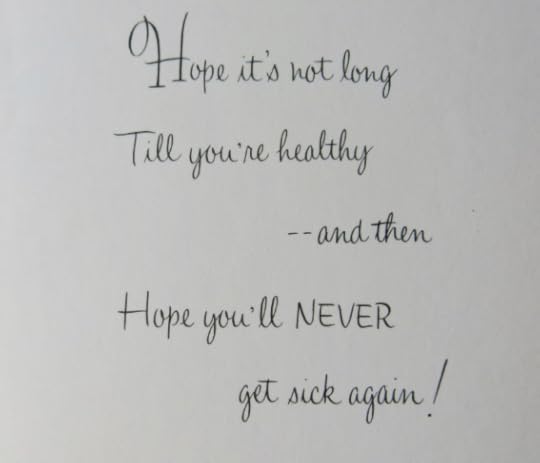 Hope it's not long
Till you're healthy
--and then
Hope you'll NEVER
get sick again!